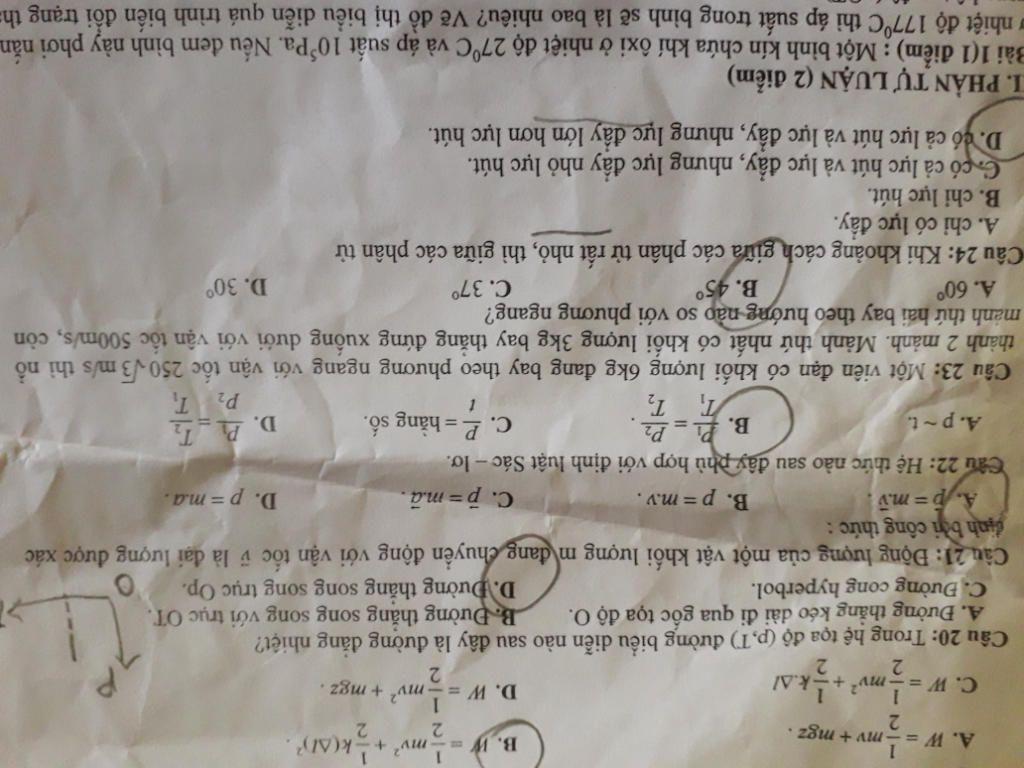 A. W = 1/2 mv + mgz .
B. W = 1/2 mv² + 1/2 k(Δl)² .
C. W = 1/2 mv² + 1/2 k.Δl
D. W = 1/2 mv² + mgz .
Câu 20: Trong hệ tọa độ (p,T) đường biểu diễn nào sau đây là đường đẳng nhiệt?
A. Đường thẳng kéo dài đi qua gốc tọa độ O.
B. Đường thẳng song song với trục OT.
C. Đường cong hyperbol.
D. Đường thẳng song song trục Op.
P
O
Câu 21: Động lượng của một vật khối lượng m đang chuyển động với vận tốc v⃗ là đại lượng được xác
định bởi công thức :
A. p⃗ = m.v⃗ .
B. p = m.v .
C. p⃗ = m.a⃗ .
D. p = m.a .
Câu 22: Hệ thức nào sau đây phù hợp với định luật Sác – lơ.
A. p ~ t.
B. p₁/T₁ = p₂/T₂ .
C. p/t = hằng số.
D. p₁/p₂ = T₂/T₁
Câu 23: Một viên đạn có khối lượng 6kg đang bay theo phương ngang với vận tốc 250√3 m/s thì nổ
thành 2 mảnh. Mảnh thứ nhất có khối lượng 3kg bay thẳng đứng xuống dưới với vận tốc 500m/s, còn
mảnh thứ hai bay theo hướng nào so với phương ngang?
A. 60⁰
B. 45⁰
C. 37⁰
D. 30⁰
Câu 24: Khi khoảng cách giữa các phân tử rất nhỏ, thì giữa các phân tử
A. chỉ có lực đẩy.
B. chỉ lực hút.
C. có cả lực hút và lực đẩy, nhưng lực đẩy nhỏ lực hút.
D. có cả lực hút và lực đẩy, nhưng lực đẩy lớn hơn lực hút.
I. PHẦN TỰ LUẬN (2 điểm)
Bài 1(1 điểm) : Một bình kín chứa khí ôxi ở nhiệt độ 27⁰C và áp suất 10⁵Pa. Nếu đem bình này phơi
nhiệt độ 177⁰C thì áp suất trong bình sẽ là bao nhiêu? Vẽ đồ thị biểu diễn quá trình biến đổi trạng